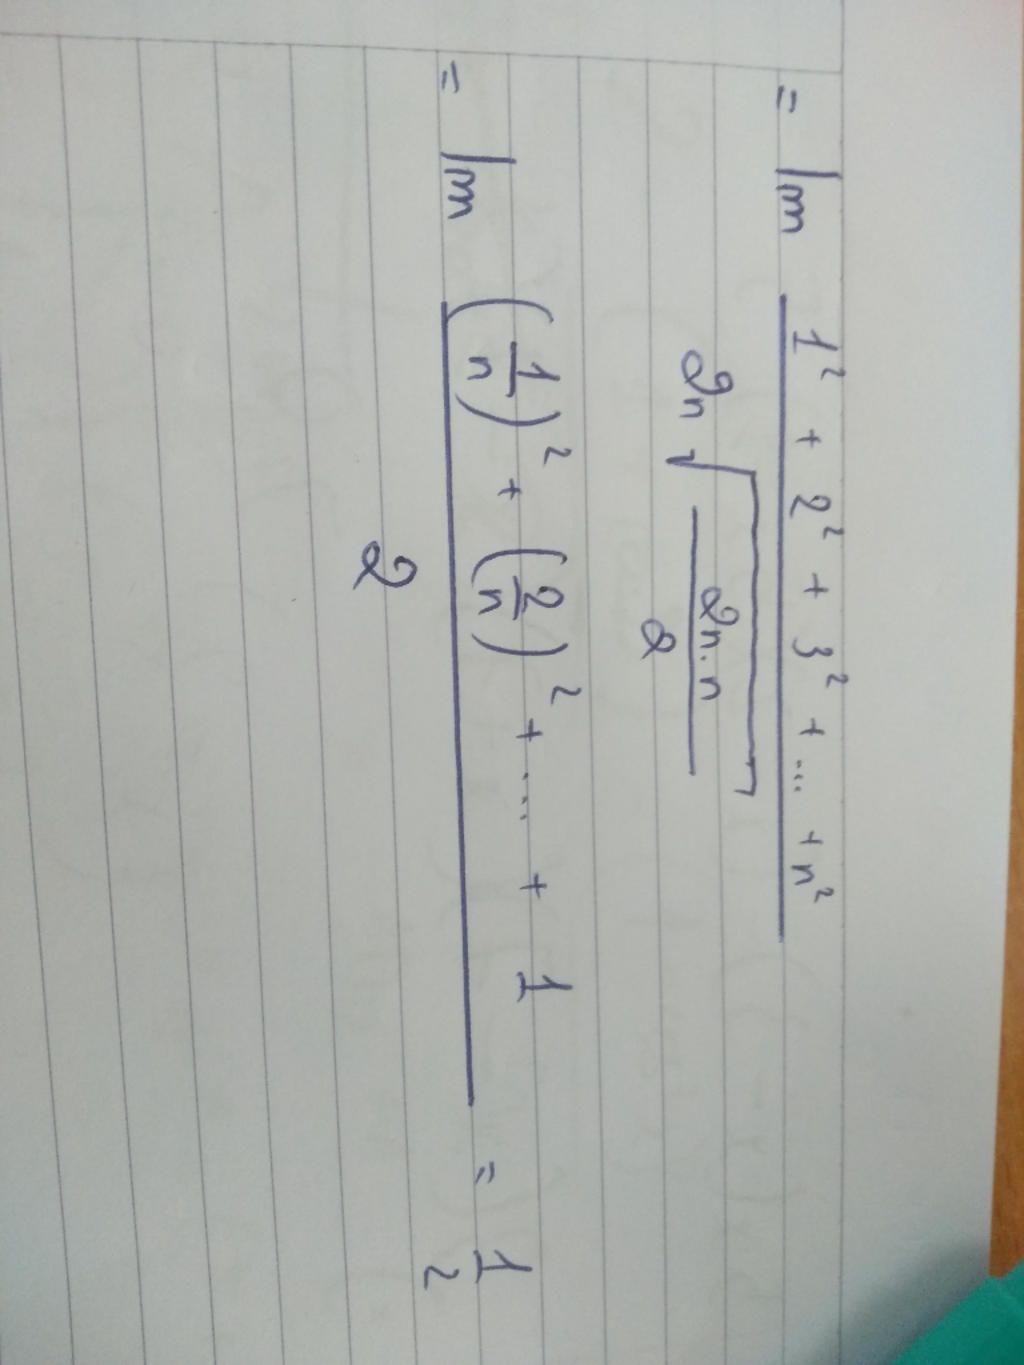 = lm (1² + 2² + 3² + ... + n²) / (2n √(2n.n / 2))
= lm ((1/n)² + (2/n)² + ... + 1) / 2 = 1/2